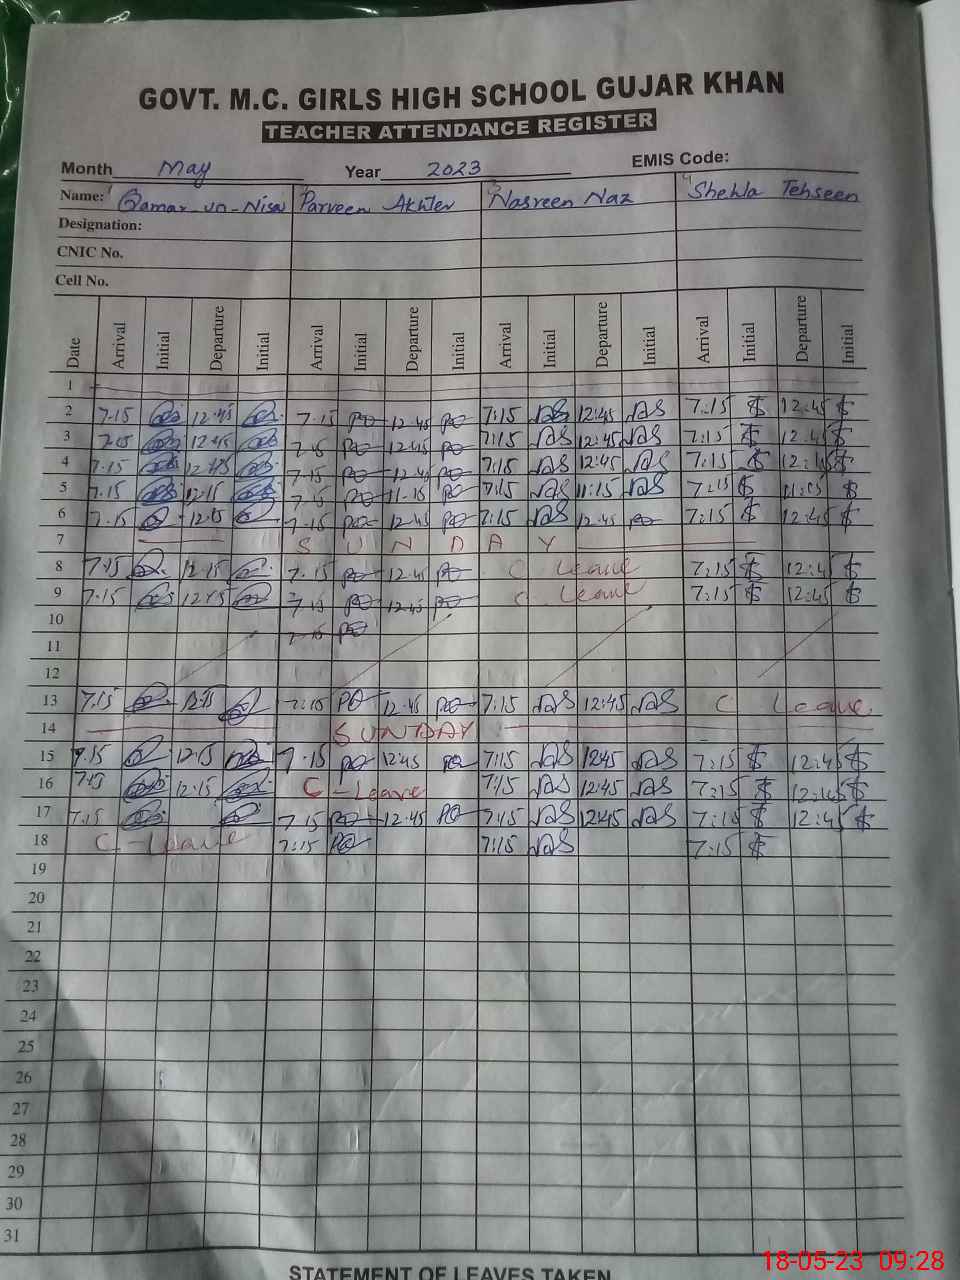 GOVT. M.C. GIRLS HIGH SCHOOL GUJAR KHAN
TEACHER ATTENDANCE REGISTER
Month May Year 2023 EMIS Code:
Name: 1 Qamar-un-Nisa 2 Parveen Akhter 3 Nasreen Naz 4 Shehla Tehseen
Designation:
CNIC No.
Cell No.
Date Arrival Initial Departure Initial Arrival Initial Departure Initial Arrival Initial Departure Initial Arrival Initial Departure Initial
1
2 7.15 12.45 7.15 PO 12.45 PO 7:15 12:45 7:15 12:45
3 12.45 7.15 PO 12.45 PO 7:15 12:45 7:15 12:45
4 7.15 7.15 PO 12.45 PO 7:15 12:45 7:15
5 7.15 12.15 7.15 PO 11.15 PO 7:15 11:15 7:15
6 7.15 12.15 7.15 PO 12.45 PO 7:15 12:45 7:15 12:45
7 SUNDAY
8 7.15 12.15 7.15 PO 12.45 PO C Leave 7:15 12:45
9 7.15 12.15 7.15 PO 12.45 PO C Leave 7:15 12:45
10 7.15 PO
11
12
13 7.15 12.15 7.15 PO 12.45 PO 7:15 12:45 C Leave
14 SUNDAY
15 7.15 12.15 7.15 PO 12.45 PO 7:15 12:45 7:15 12:45
16 7.15 12.15 C-Leave 7:15 12:45 7:15 12:45
17 7.15 7.15 PO 12.45 PO 7:15 12:45 7:15 12:45
18 C-Leave 7:15 PO 7:15 7:15
19
20
21
22
23
24
25
26
27
28
29
30
31
STATEMENT OF LEAVES TAKEN
18-05-23 09:28